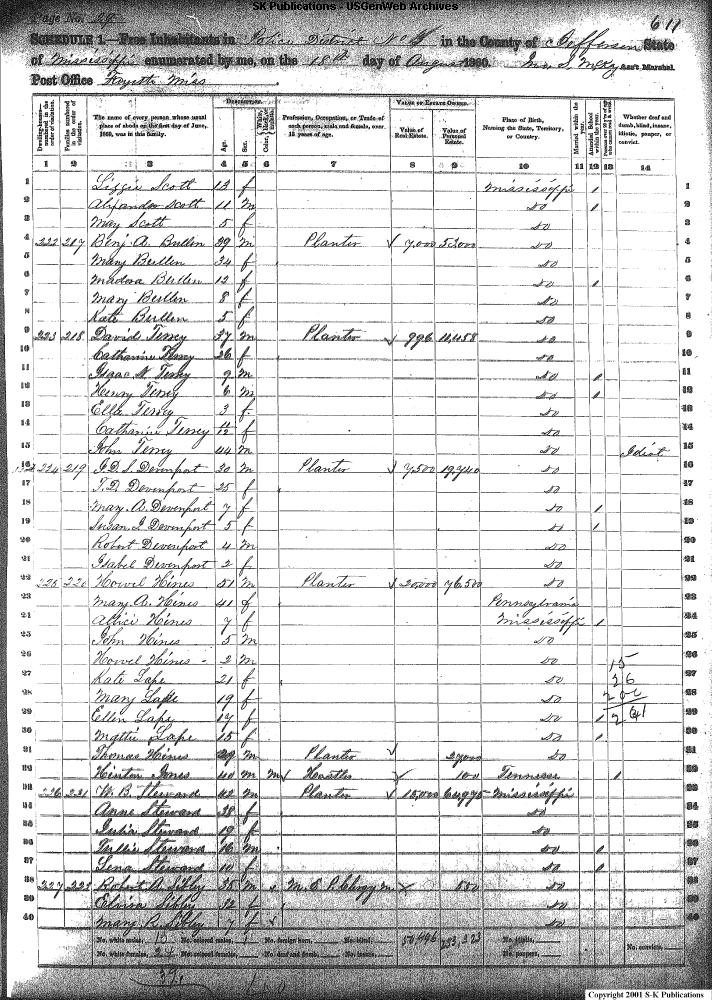 SK Publications - USGenWeb Archives
Page No. 26
611
SCHEDULE 1.—Free Inhabitants in Police District No 5 in the County of Jefferson State
of Mississippi enumerated by me, on the 18th day of August 1860. Ass't Marshal.
Post Office Fayette Miss.
DESCRIPTION. VALUE OF ESTATE OWNED.
Dwelling-houses—numbered in the order of visitation. Families numbered in the order of visitation. The name of every person whose usual place of abode on the first day of June, 1860, was in this family. Age. Sex. Profession, Occupation, or Trade of each person, male and female, over 15 years of age. Value of Real Estate. Value of Personal Estate. Place of Birth, Naming the State, Territory, or Country. Married within the year. Attended School within the year. Whether deaf and dumb, blind, insane, idiotic, pauper, or convict.
1 2 3 4 5 6 7 8 9 10 11 12 13 14
1 Lizzie Scott 13 f Mississippi 1 1
2 Alixandar Scott 11 m do 1 2
3 May Scott 5 f do 3
4 222 217 Benj. A. Bullen 39 m Planter 7,000 do 4
5 Mary Bullen 34 f do 5
6 Madora Bullen 12 f do 1 6
7 Mary Bullen 8 f do 7
8 Kate Bullen 5 f do 8
9 223 218 David Terry 37 m Planter 996 11,458 do 9
10 Catharine Terry 26 f do 10
11 Isaac N Terry 9 m do 1 11
12 Henry Terry 6 m do 1 12
13 Ella Terry 3 f do 13
14 Catharine Terry f do 14
15 John Terry 44 m do Idiot 15
16 224 219 Devenport 30 m Planter 7,500 19,740 do 16
17 Devenport 25 f do 17
18 Mary A. Devenport 7 f do 1 18
19 Susan I Devenport 5 f do 1 19
20 Robert Devenport 4 m do 20
21 Isabel Devenport 2 f do 21
22 225 220 Howel Hines 51 m Planter 20,000 76,500 do 22
23 Mary A. Hines 41 f Pennsylvania 23
24 Allice Hines 7 f Mississippi 1 24
25 John Hines 5 m do 25
26 Howel Hines 2 m do 26
27 Kate Lape 21 f do 27
28 Mary Lape 19 f do 28
29 Ellen Lape 17 f do 1 29
30 Mattie Lape 15 f do 1 30
31 Thomas Hines 29 m Planter do 31
32 Hinton Jones 40 m m Hostler 100 Tennessee 1 32
33 226 221 W. B. Steward 42 m Planter 15,000 Mississippi 33
34 Anne Steward 38 f do 34
35 Julia Steward 19 f do 35
36 Tullie Steward 16 m do 1 36
37 Lena Steward 10 f do 1 37
38 227 222 Robert A. Sibley 35 m M. E. P. Clergym 38
39 Elvira Sibley 32 f do 39
40 Mary R. Sibley 7 f do 40
No. white males, 15 No. colored males, 1 No. foreign born, No. blind, 50,496 No. idiotic, No. convicts,
No. white females, 24 No. colored females, No. deaf and dumb, No. insane, No. paupers,
Copyright 2001 S-K Publications